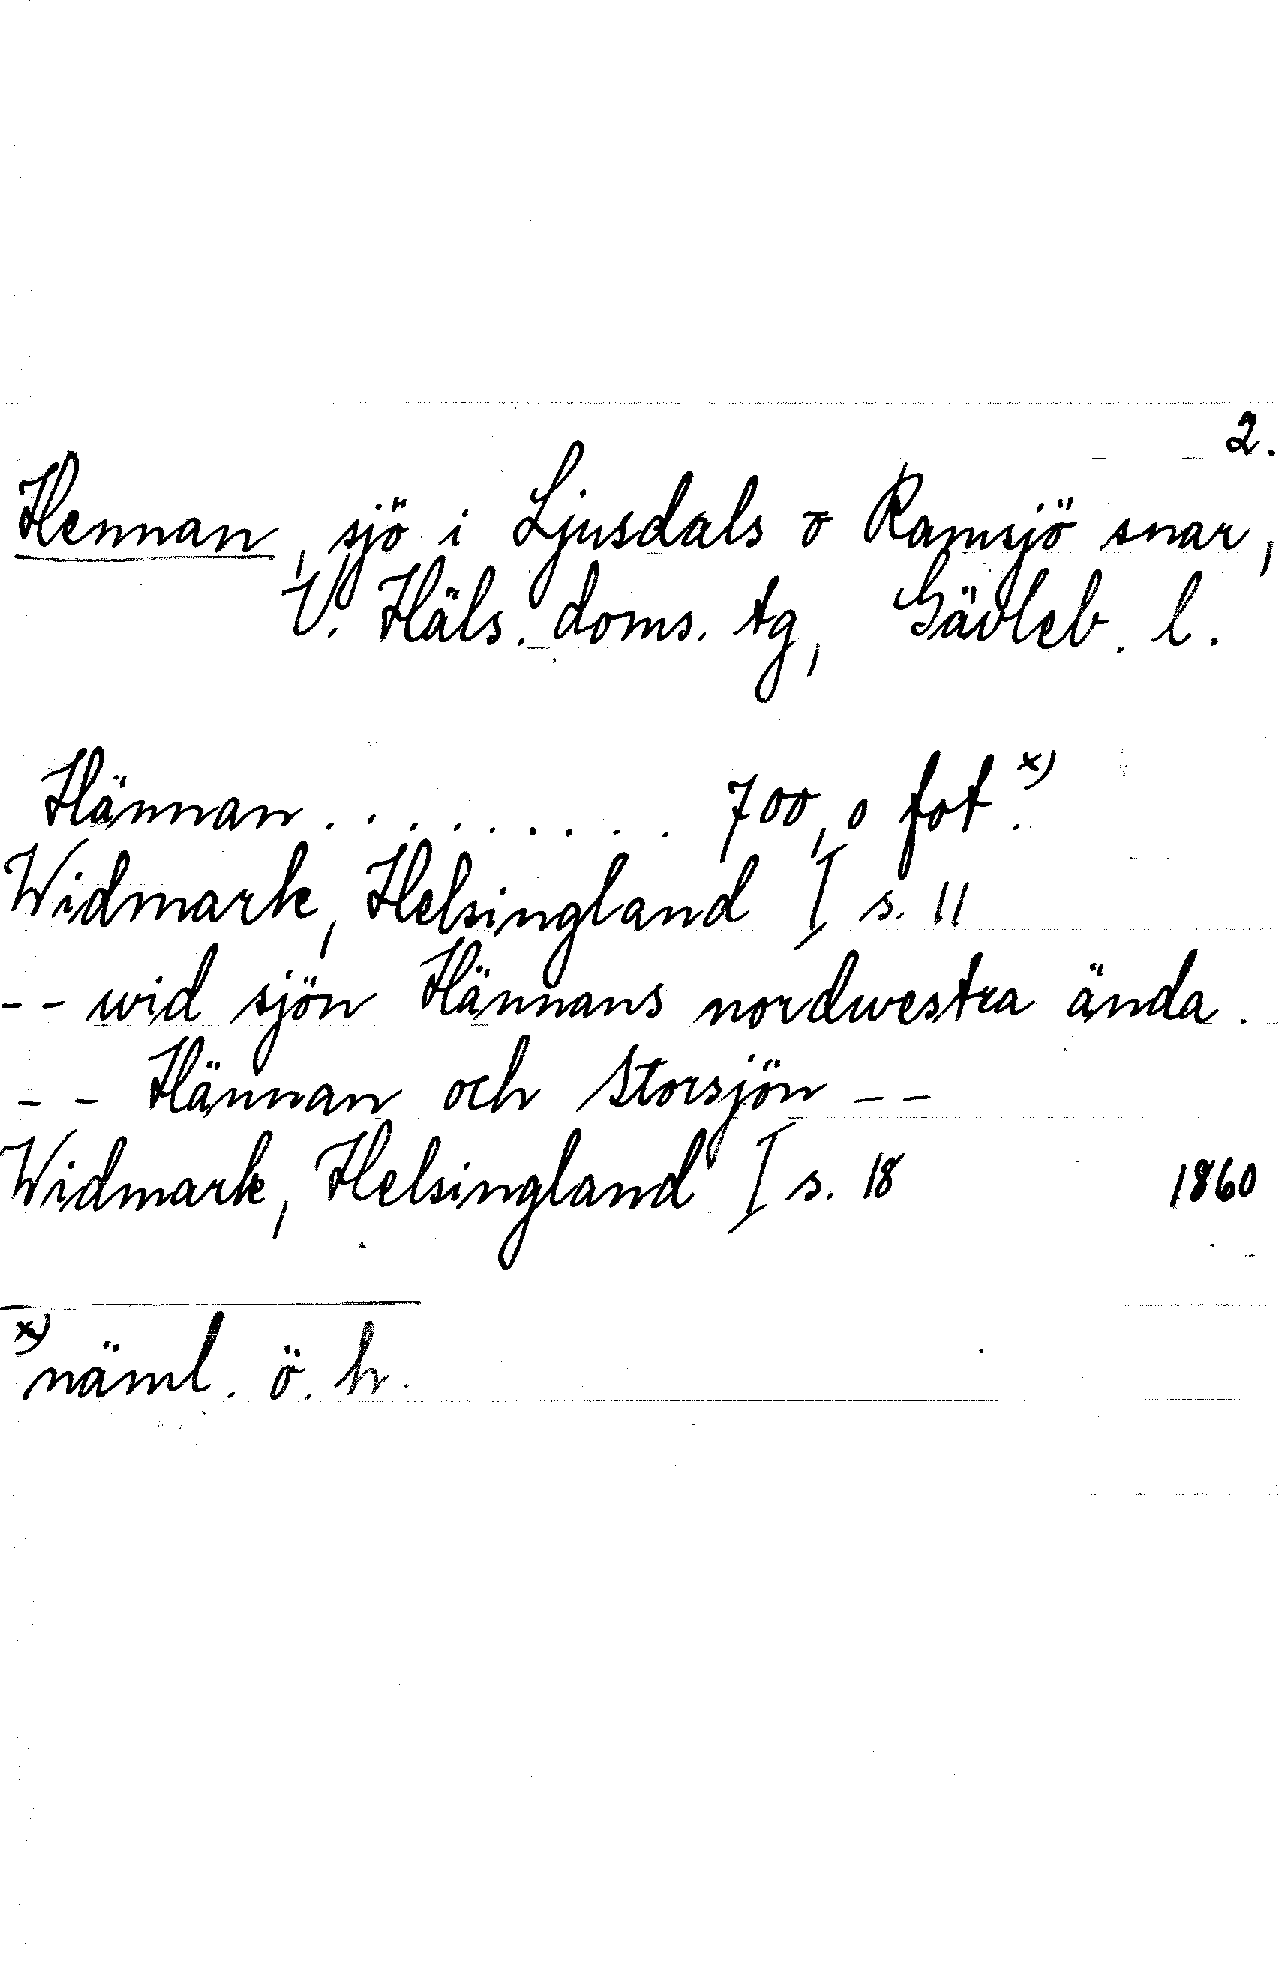 2.
Hennan, sjö i Ljusdals o Ramsjö snar,
V. Häls. doms. tg, Gävleb. l.
Hännan . . . . . . . . . 700,0 fot. x)
Widmark, Helsingland I s. 11
-- wid sjön Hännans nordwestra ända.
-- Hännan och Storsjön --
Widmark, Helsingland I s. 18 1860
x) näml. ö. h.